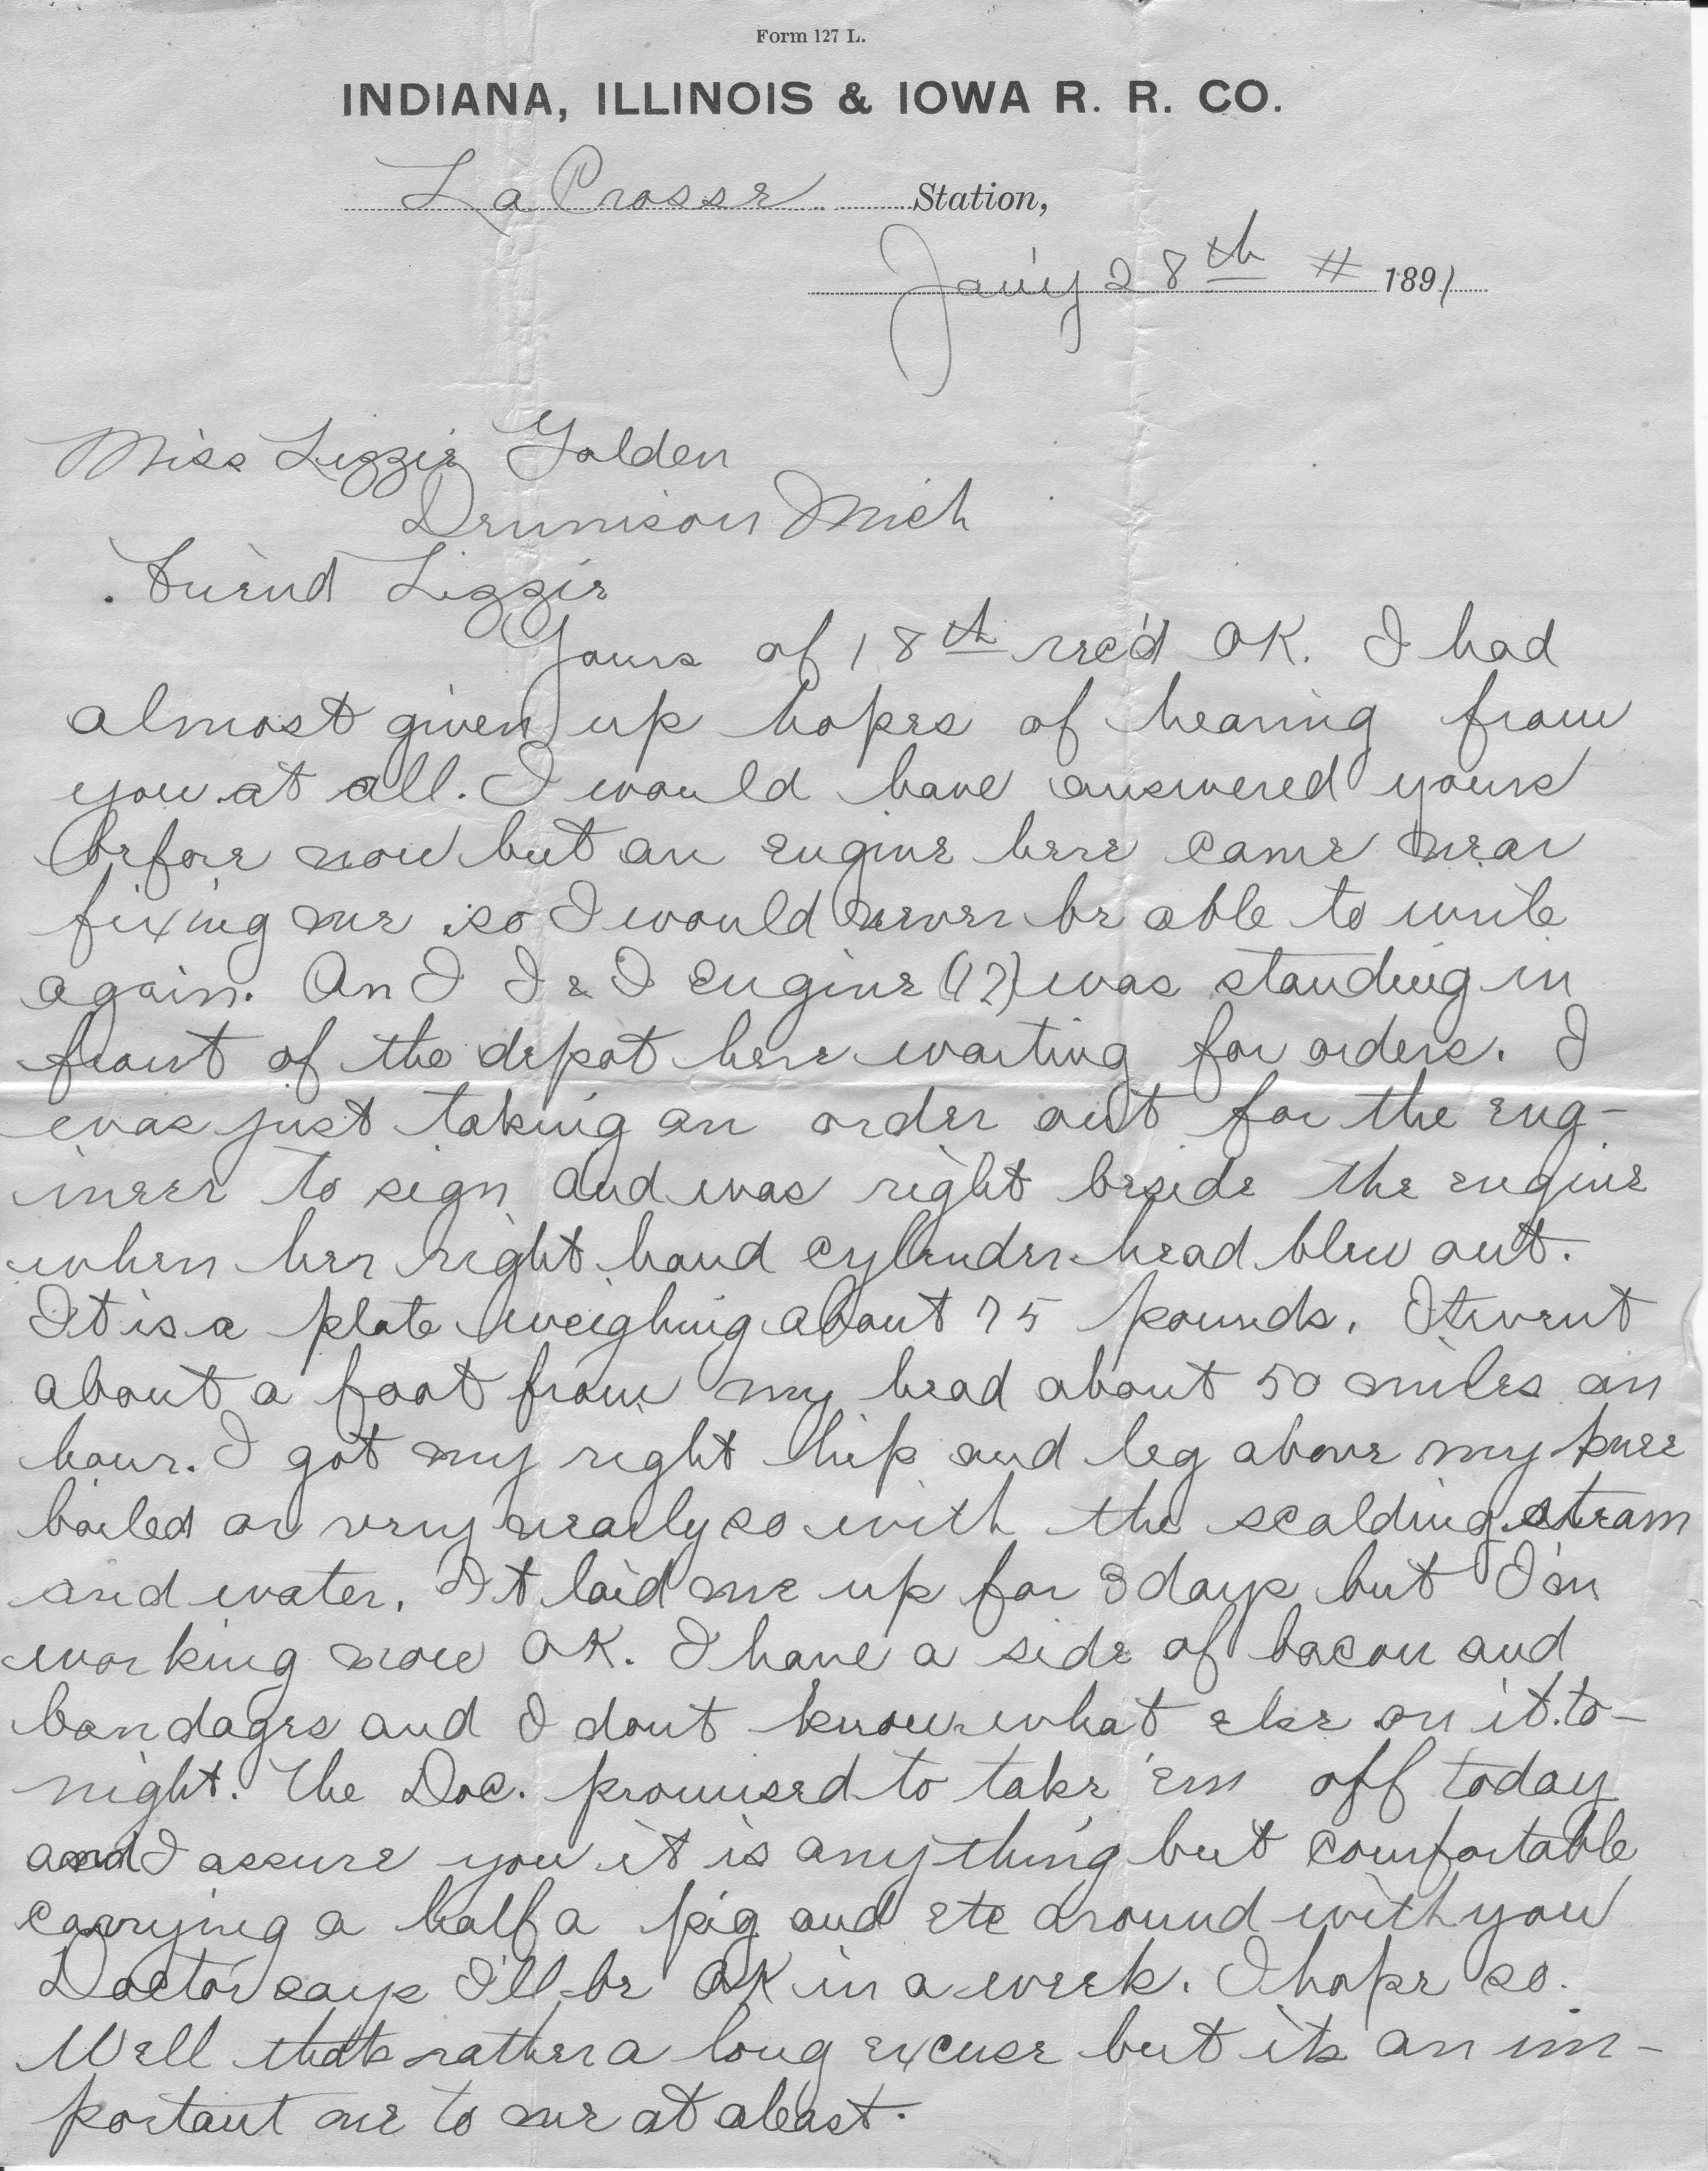 Form 127 L.
INDIANA, ILLINOIS & IOWA R. R. CO.
La Crosse Station,
Jan'y 28th # 1891
Miss Lizzie Golden
Dennison Mich
Friend Lizzie
Yours of 18th rec'd OK. I had
almost given up hopes of hearing from
you at all. I would have answered yours
before now but an engine here came near
fixing me so I would never be able to write
again. An I I & I engine (12) was standing in
front of the depot here waiting for orders. I
was just taking an order out for the eng-
ineer to sign and was right beside the engine
when her right hand cylinder head blew out.
It is a plate weighing about 75 pounds. It went
about a foot from my head about 50 miles an
hour. I got my right hip and leg above my knee
boiled or very nearly so with the scalding steam
and water. It laid me up for 3 days but I'm
working now OK. I have a side of bacon and
bandages and I dont know what else on it to-
night. The Doc. promised to take 'em off today
and I assure you it is anything but comfortable
carrying a half a pig and etc around with you
Doctor says I'll be OK in a week. I hope so.
Well thats rather a long excuse but its an im-
portant one to me at aleast.